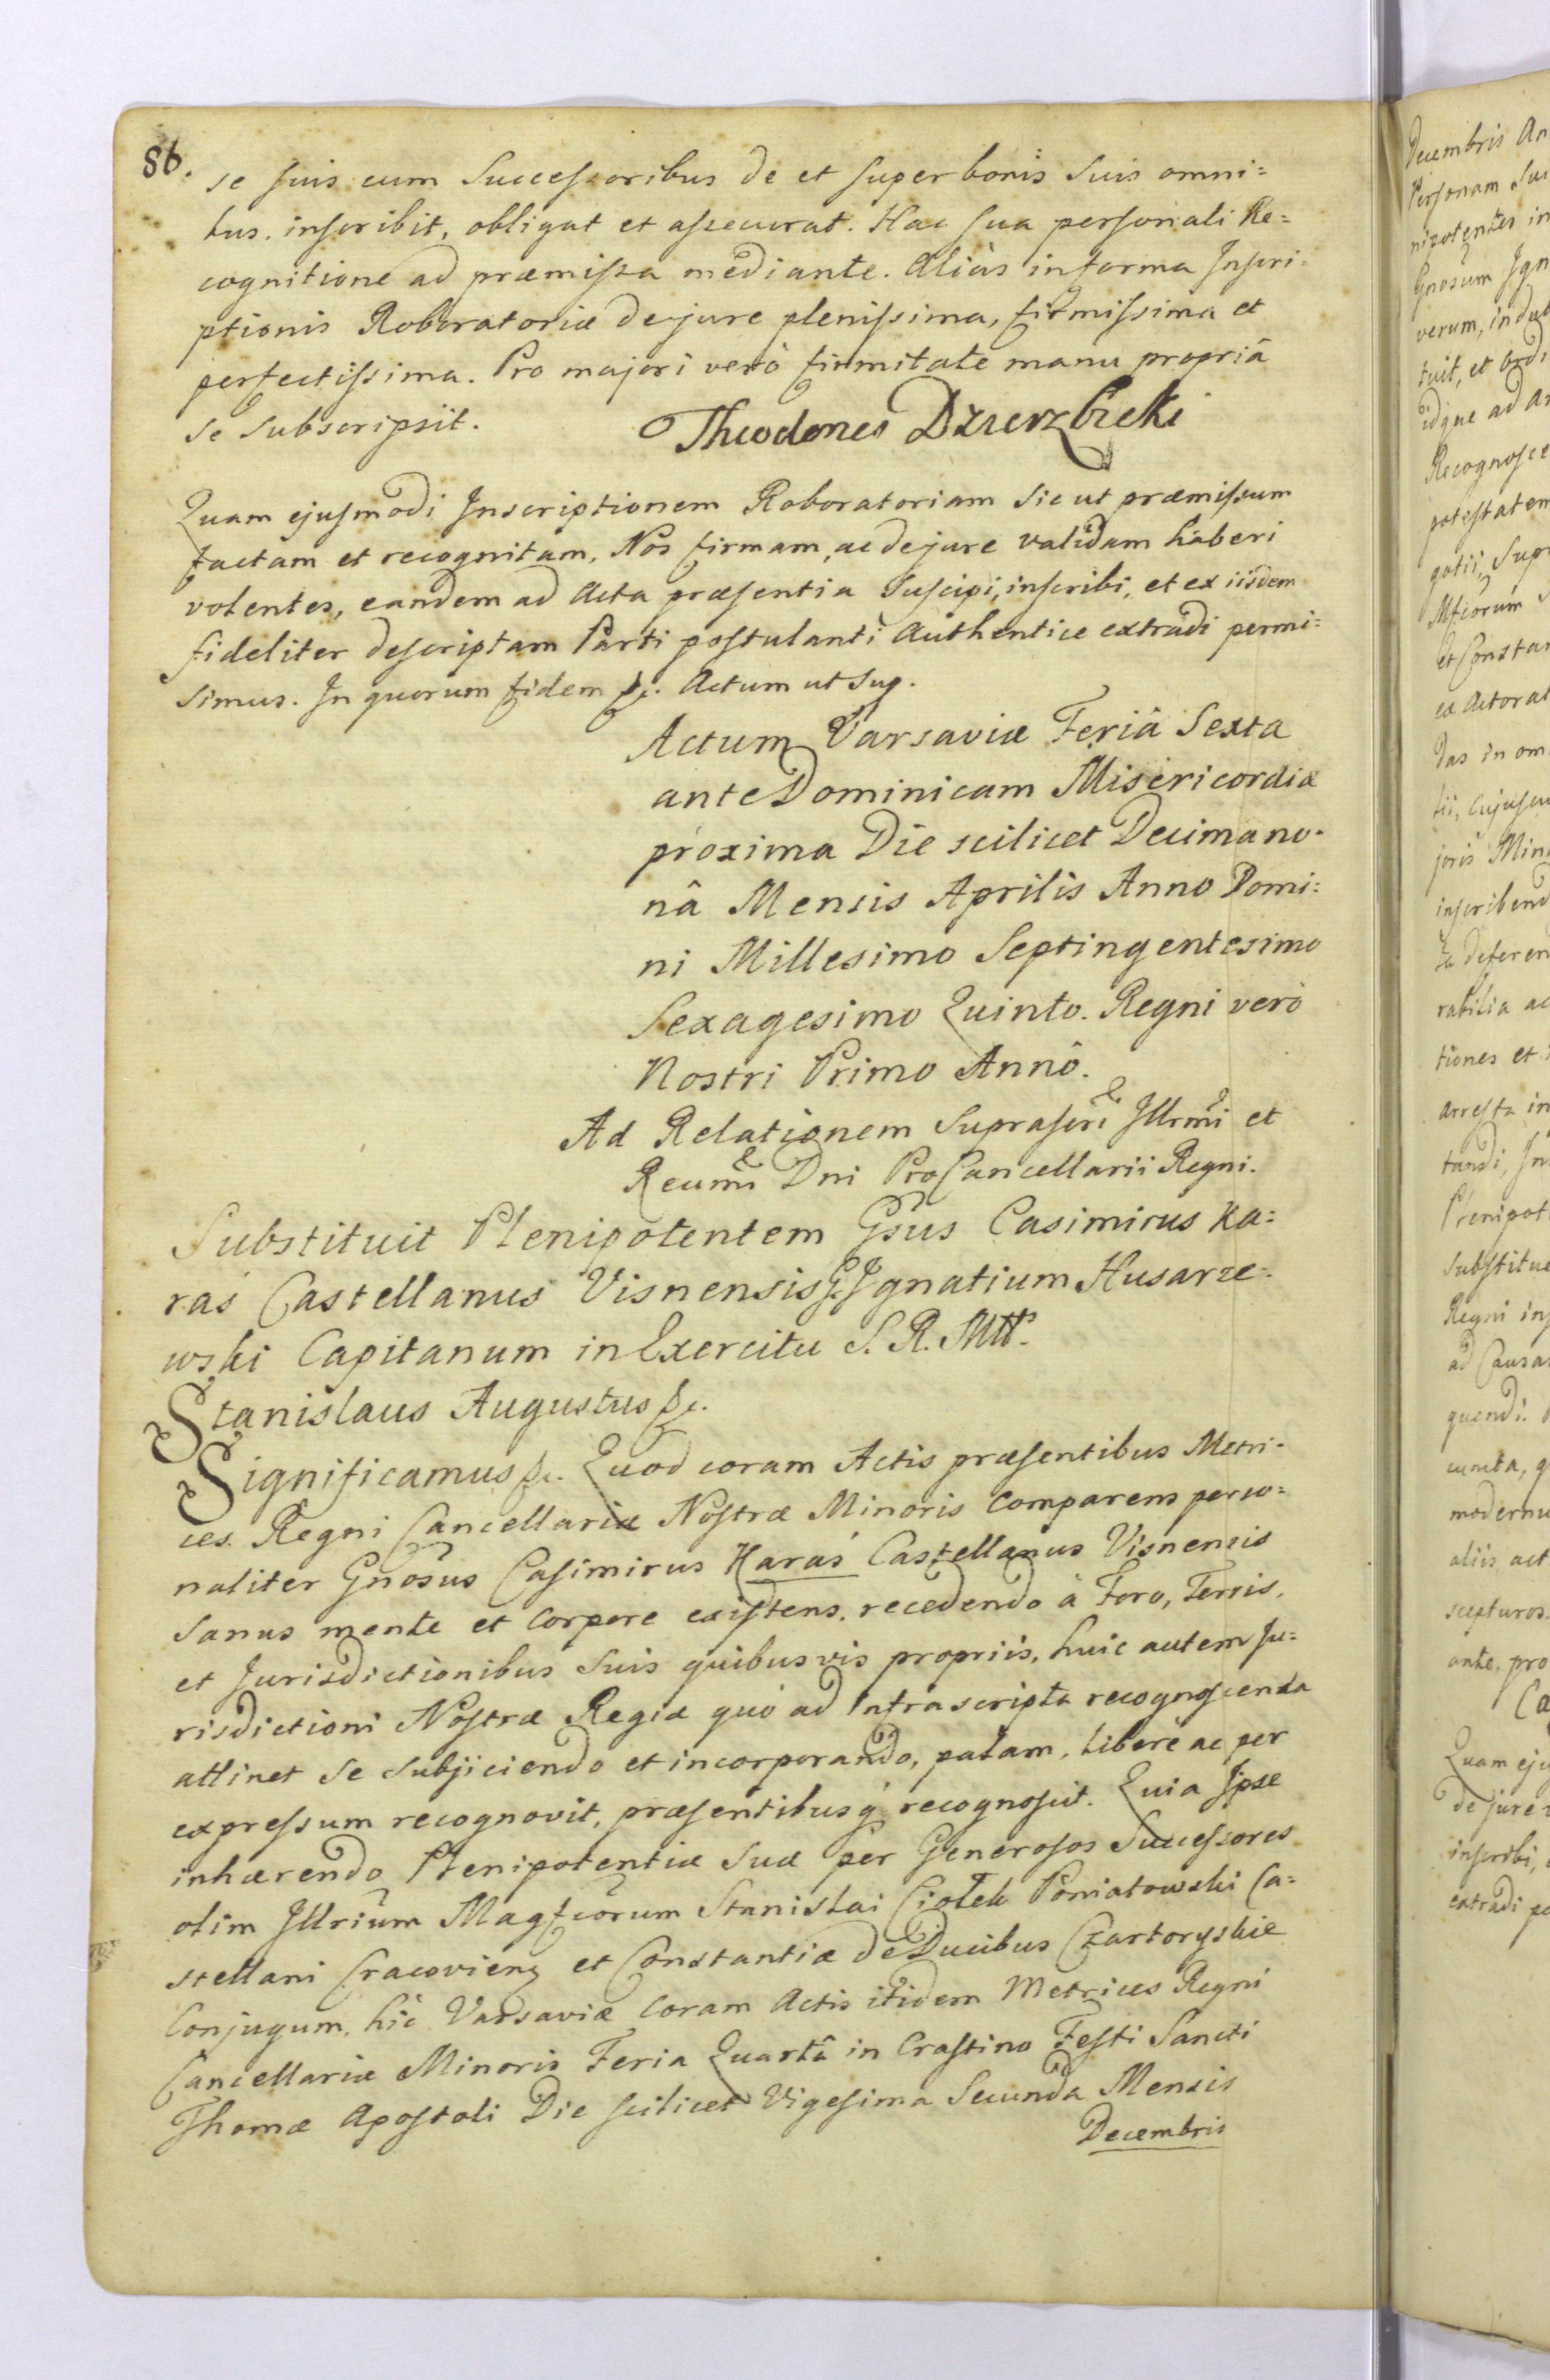 86.
se suis cum Successoribus de et super bonis suis omni=
bus. inscribit, obligat et assecurat. Hac sua personali Re=
cognitione ad præmissa mediante. Aliàs in forma Inscri=
ptionis Roboratoriæ de jure plenissima, firmissima et
perfectissima. Pro majori verò firmitate manu propriâ
se subscripsit. Theodorus Dzierzbicki
Quam ejusmodi Inscriptionem Roboratoriam sic ut præmissum
factam et recognitam, Nos firmam, ac de jure validam haberi
volentes, eandem ad Acta præsentia suscipi, inscribi, et ex iisdem
fideliter descriptam Parti postulanti Authentice extradi permi=
simus. In quorum fidem &c. Actum ut sup.
Actum Varsaviæ Feriâ Sexta
ante Dominicam Misericordiæ
proxima Die scilicet Decimano-
nâ Mensis Aprilis Anno Domi=
ni Millesimo Septingentesimo
Sexagesimo Quinto. Regni verò
Nostri Primo Annô.
Ad Relationem Suprascri Illrmi et
Reumi Dni ProCancellarii Regni.
Substituit Plenipotentem Gsus Casimirus Ka=
raś Castellanus Visnensis G. Ignatium Husarze=
wski Capitanum in Exercitu S. R. Mttis
Stanislaus Augustus &c.
Significamus &c. Quod coram Actis præsentibus Metri-
ces Regni Cancellariæ Nostræ Minoris comparens perso=
naliter Gnosus Casimirus Karaś Castellanus Visnensis
sanus mente et corpore existens, recedendo à Foro, Terris,
et Jurisdictionibus suis quibusvis propriis, huic autem Ju=
risdictioni Nostræ Regiæ quò ad infrascripta recognoscenda
attinet se subjiciendo et incorporando, palam, liberè ac per
expressum recognovit, præsentibusq́ recognoscit. Quia Ipse
inhærendo Plenipotentiæ suæ per Generosos Successores
olim Illrium Magfcorum Stanislai Ciołek Poniatowski Ca=
stellani Cracovieng et Constantiæ de Ducibus Czartoryskie
Conjugum, hic Varsaviæ coram Actis itidem Metrices Regni
Cancellariæ Minoris Feria Quartâ in Crastino Festi Sancti
Thomæ Apostoli Die scilicet Vigesima Secunda Mensis
Decembris
Decembris An
Personam Su
nipotentes in
Gnosum Ign
verum, indub
tuit, et ordi
idque ad A
Recognosce
potestatem
gotii, Supr
Mfcorum
et Constan
ex Actorat
das in om
tii, cujuscu
joris Min
inscribend
deferen
rabilia ac
tiones et
arresta in
tandi, In
Plenipot
substitue
Regni in
ad Causa
quendi.
cuncta, q
modernu
aliis act
scepturos.
ante. pro
Ca
Quam eju
de jure
inscribi,
extradi pe